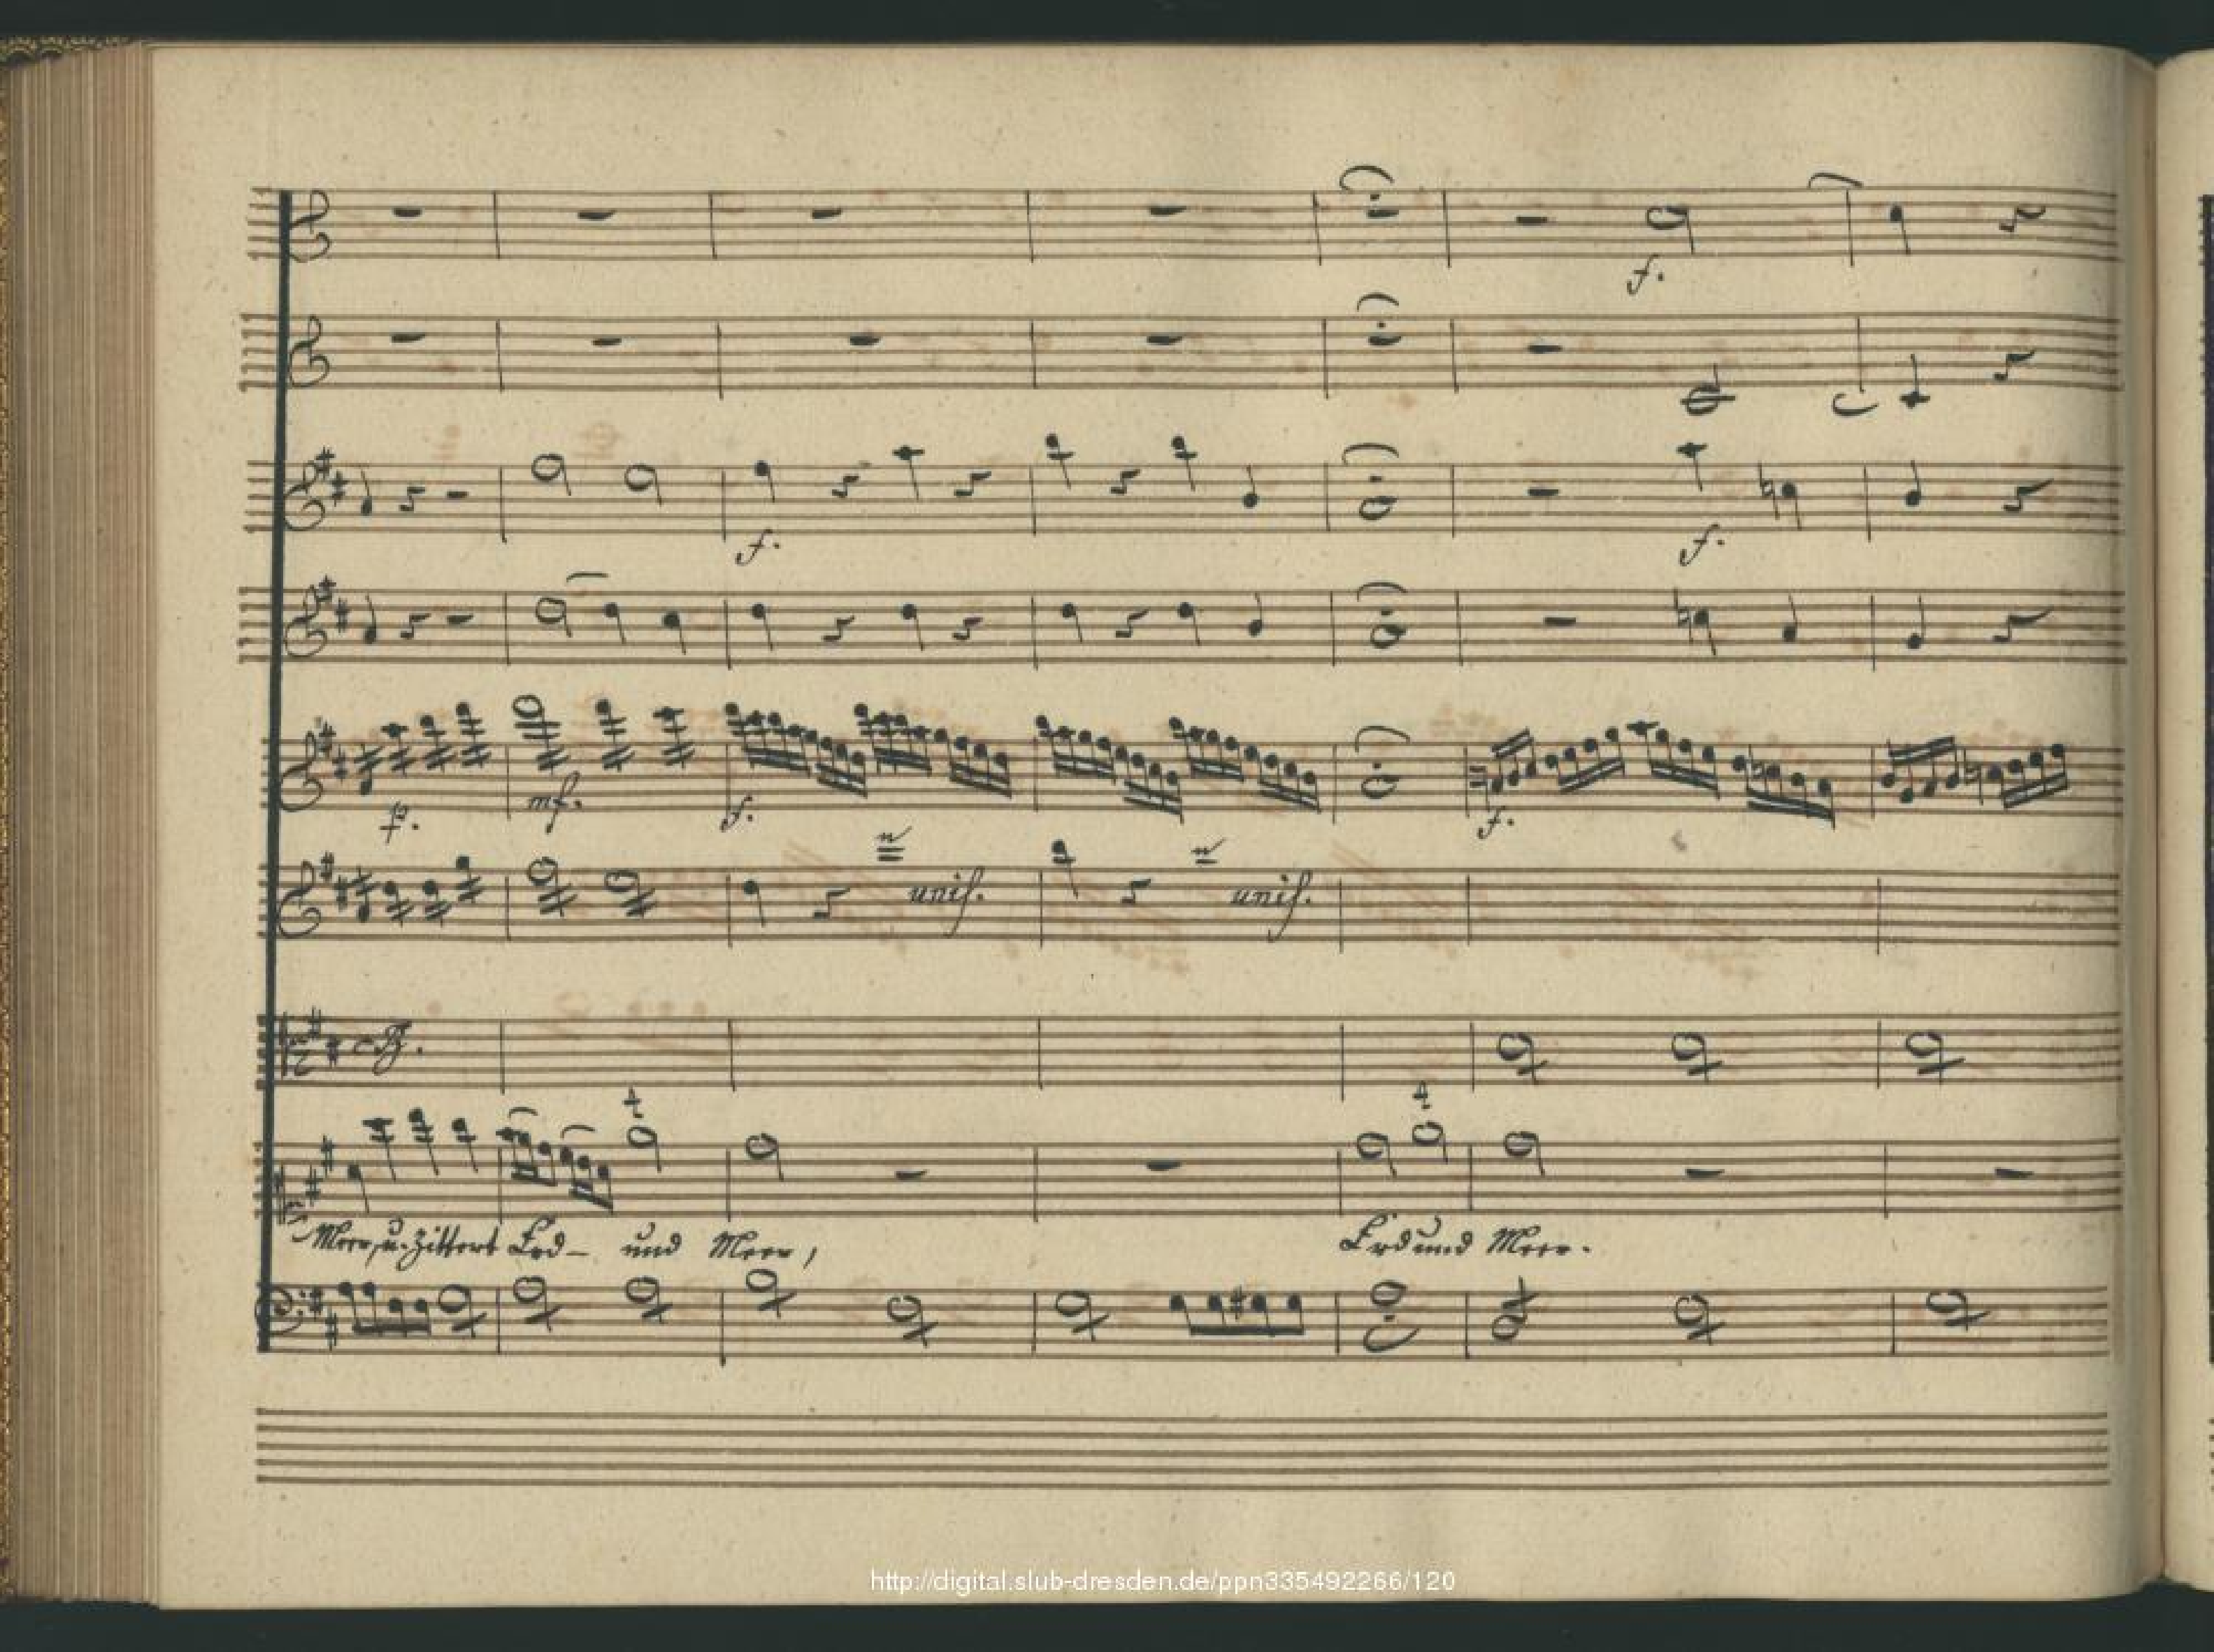 f.
f.
f.
p. mf. f. f.
unis. unis.
cB.
Meer, u. zittert Erd- und Meer, Erd und Meer.
http://digital.slub-dresden.de/ppn335492266/120